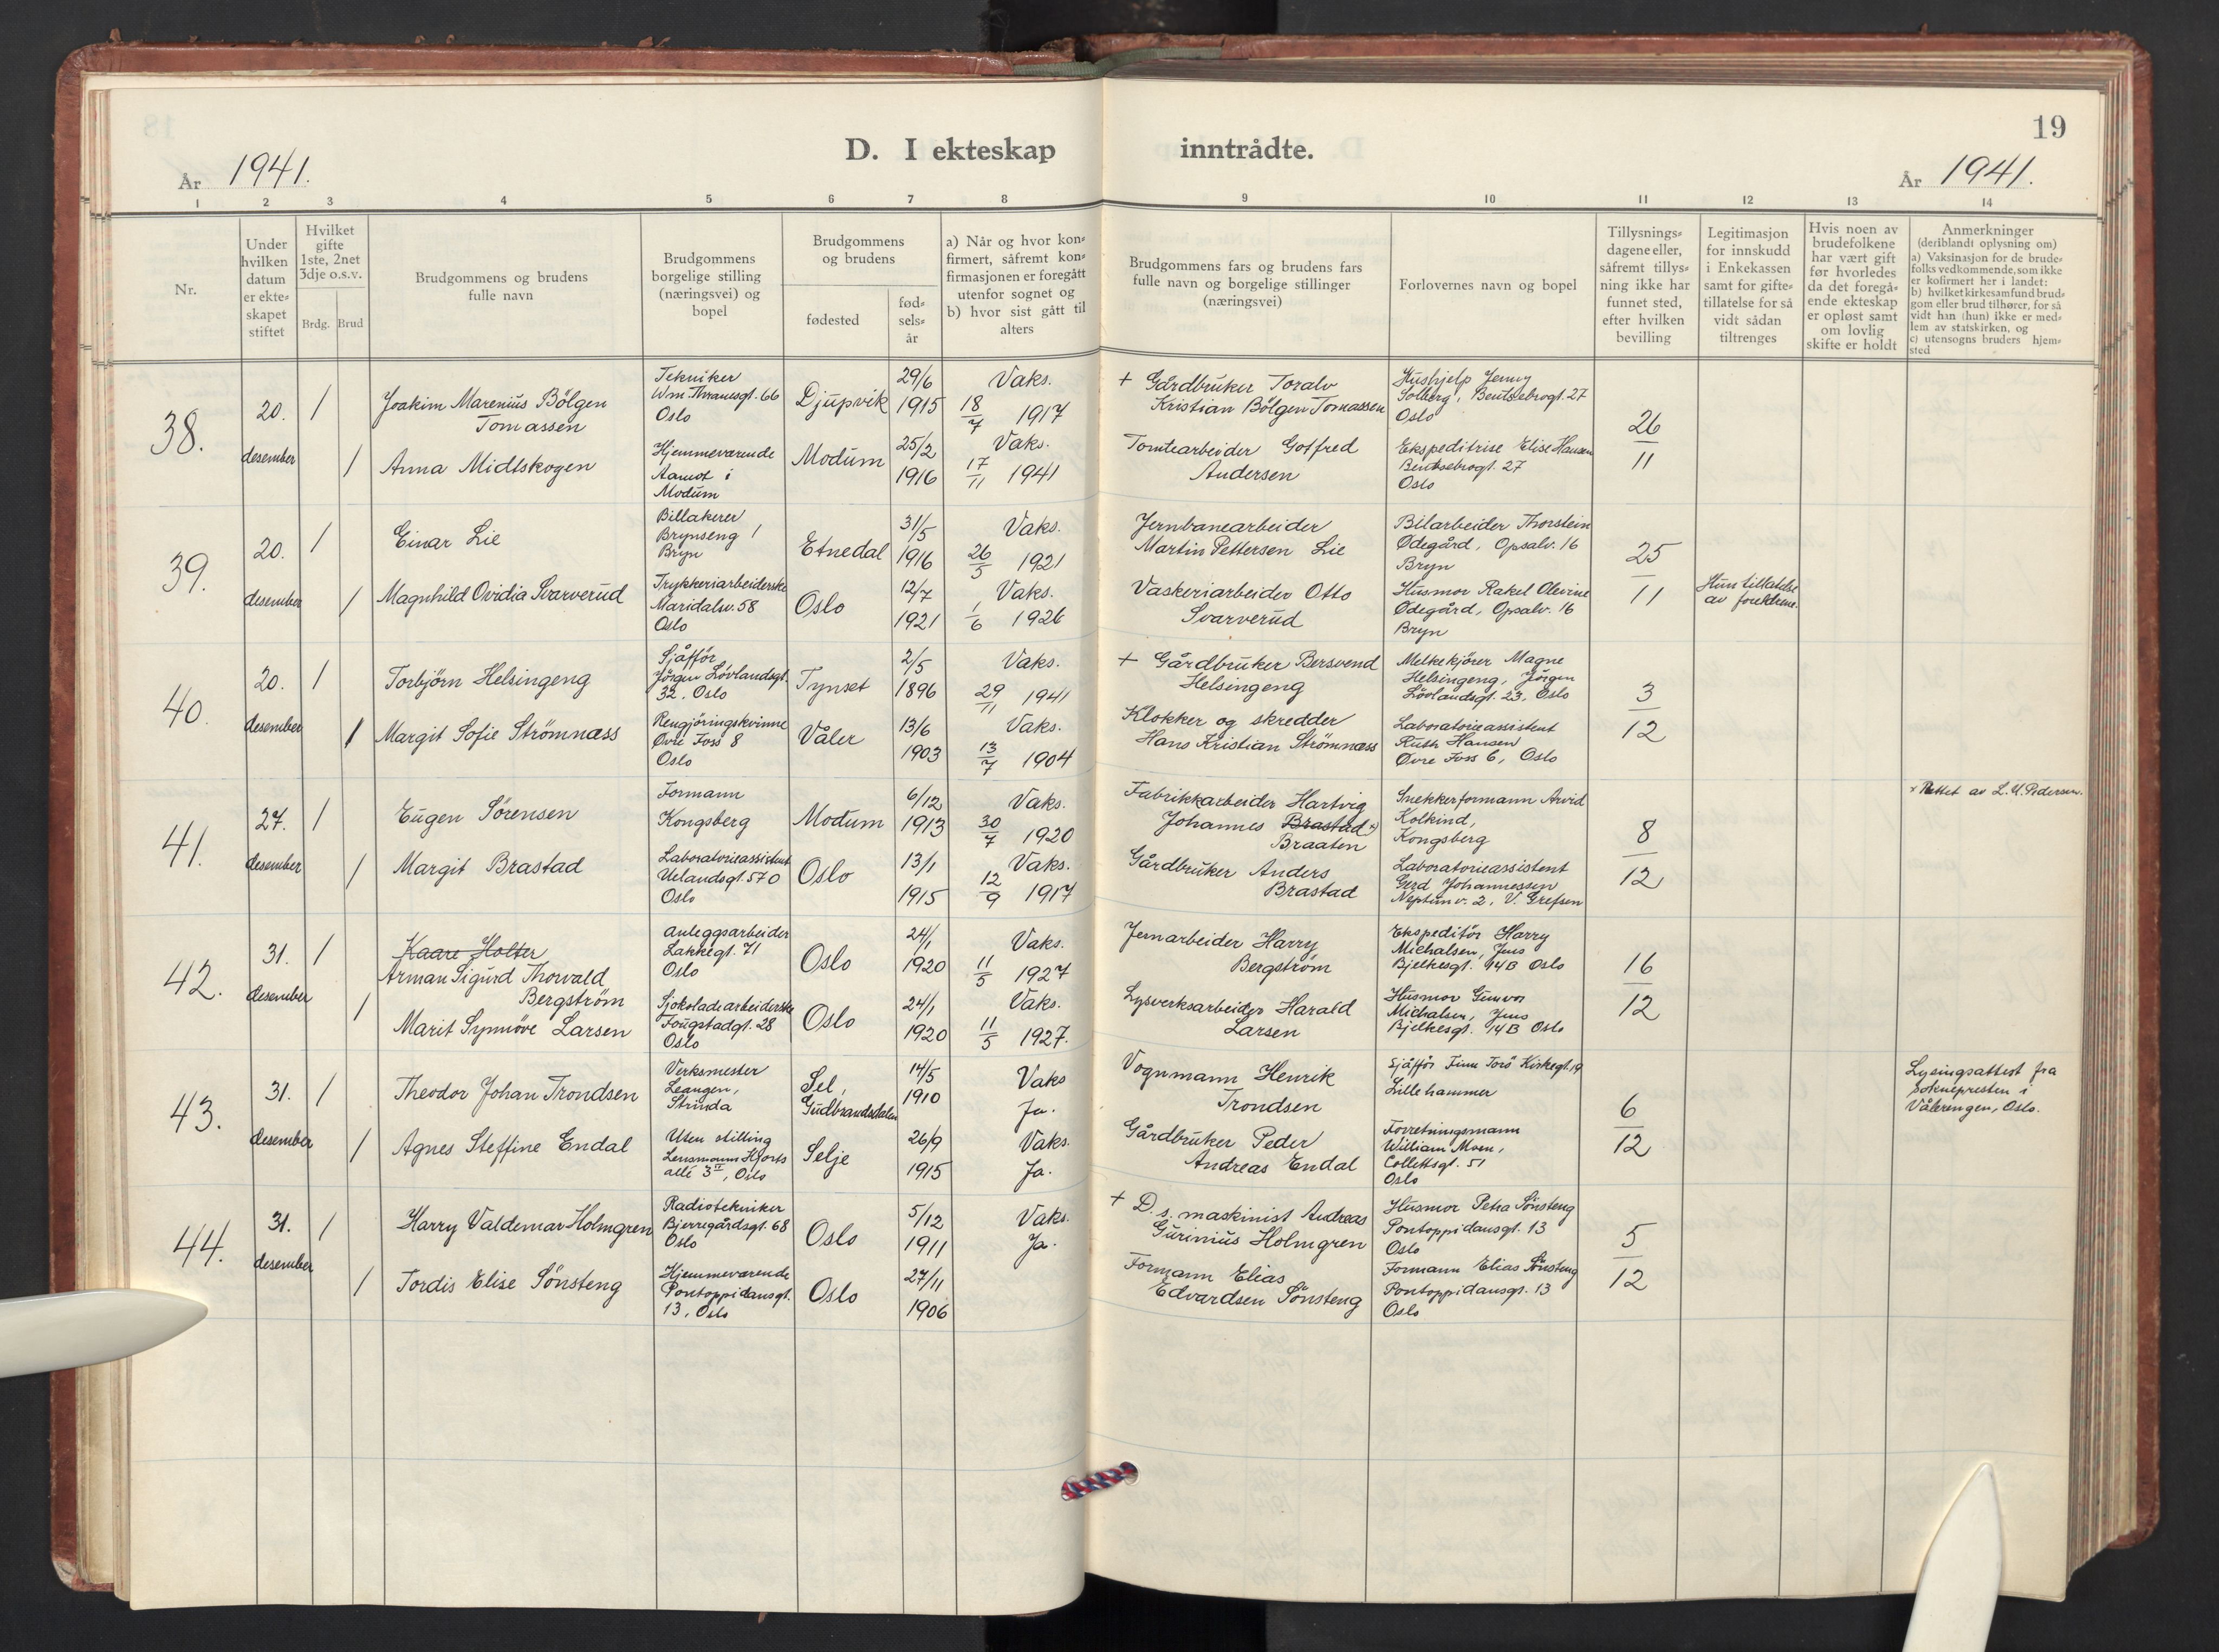 19
D. I ekteskap inntrådte.
År 1941. År 1941.
1 2 3 4 5 6 7 8 9 10 11 12 13 14
Nr.
Under hvilken datum er ekteskapet stiftet
Hvilket gifte 1ste, 2net 3dje o.s.v.
Brdg. Brud
Brudgommens og brudens fulle navn
Brudgommens borgelige stilling (næringsvei) og bopel
Brudgommens og brudens
fødested
fødselsår
a) Når og hvor konfirmert, såfremt konfirmasjonen er foregått utenfor sognet og b) hvor sist gått til alters
Brudgommens fars og brudens fars fulle navn og borgelige stillinger (næringsvei)
Forlovernes navn og bopel
Tillysningsdagene eller, såfremt tillysning ikke har funnet sted, efter hvilken bevilling
Legitimasjon for innskudd i Enkekassen samt for giftetillatelse for så vidt sådan tiltrenges
Hvis noen av brudefolkene har vært gift før hvorledes da det foregående ekteskap er opløst samt om lovlig skifte er holdt
Anmerkninger (deriblandt oplysning om) a) Vaksinasjon for de brudefolks vedkommende, som ikke er kofirmert her i landet: b) hvilket kirkesamfund brudgom eller brud tilhører, for så vidt han (hun) ikke er medlem av statskirken, og c) utensogns bruders hjemsted
38.
20. desember
1
Joakim Marenius Bölgen
Tomassen
Tekniker
Wm. Thranesgt. 66
Oslo
Djupvik
29/6
1915
Vaks.
18/7 1917
+ Gårdbruker Toralv
Kristian Bölgen Tomassen
Hushjelp Jenny
Solberg, Bentsebrogt. 27
Oslo
26/11
1
Anna Midtskogen
Hjemmeværende
Aamot i
Modum
Modum
25/2
1916
Vaks.
17/11 1941
Tomtearbeider Gotfred
Andersen
Ekspeditrise Elise Hansen
Bentsebrogt. 27
Oslo
39.
20. desember
1
Einar Lie
Billakerer
Brynseng 1
Bryn
Etnedal
31/5
1916
Vaks.
26/5 1921
Jernbanearbeider
Martin Pettersen Lie
Bilarbeider Thorstein
Ødegård, Opsalv. 16
Bryn
25/11
1
Magnhild Ovidia Svarverud
Trykkeriarbeiderske
Maridalsv. 58
Oslo
Oslo
12/7
1921
Vaks.
1/6 1926
Vaskeriarbeider Otto
Svarverud
Husmor Rakel Olevine
Ødegård, Opsalv. 16
Bryn
Hun tillatelse
av foreldrene.
40.
20. desember
1
Torbjörn Helsingeng
Sjåffør
Jörgen Lövlandsgt.
32, Oslo
Tynset
2/5
1896
Vaks.
29/11 1941
+ Gårdbruker Bersvend
Helsingeng
Melkekjører Magne
Helsingeng, Jörgen
Lövlandsgt. 23, Oslo
3/12
1
Margit Sofie Strömnæss
Rengjöringskvinne
Øvre Foss 8
Oslo
Våler
13/6
1903
Vaks.
13/7 1904
Klokker og skredder
Hans Kristian Strömnæss
Laboratorieassistent
Ruth Hansen
Øvre Foss 6, Oslo
41.
27. desember
1
Eugen Sörensen
Formann
Kongsberg
Modum
6/12
1913
Vaks.
30/7 1920
Fabrikkarbeider Hartvig
Johannes Brastad x)
Braaten
Snekkerformann Arvid
Kolkind,
Kongsberg
8/12
x Rettet av L. U. Pedersen.
1
Margit Brastad
Laboratorieassistent
Uelandsgt. 57 O
Oslo
Oslo
13/1
1915
Vaks.
12/9 1917
Gårdbruker Anders
Brastad
Laboratorieassistent
Gerd Johannessen
Neptunv. 2, V. Grefsen
42.
31. desember
1
Kaare Holter
Arman Sigurd Thorvald
Bergström
Anleggsarbeider
Lakkegt. 71
Oslo
Oslo
24/1
1920
Vaks.
11/5 1927
Jernarbeider Harry
Bergström
Ekspeditör Harry
Michalsen, Jens
Bjelkesgt. 14B Oslo
16/12
1
Marit Synnöve Larsen
Sjokoladearbeiderske
Fougstadgt. 28
Oslo
Oslo
24/1
1920
Vaks.
11/5 1927.
Lysverksarbeider Harald
Larsen
Husmor Gunvor
Michalsen, Jens
Bjelkesgt. 14B Oslo
43.
31. desember
1
Theodor Johan Trondsen
Verksmester
Leangen,
Strinda
Sel,
Gudbrandsdalen
14/5
1910
Vaks
Ja.
Vognmann Henrik
Trondsen
Sjåfför Finn Torö Kirkegt. 19
Lillehammer
6/12
Lysingsattest fra
soknepresten i
Vålerengen, Oslo.
1
Agnes Steffine Endal
Uten stilling
Lensmann Hjorts
allé 3 II, Oslo
Selje
26/9
1915
Vaks.
Ja.
Gårdbruker Peder
Andreas Endal
Forretningsmann
William Moen,
Collettsgt. 51
Oslo
44.
31. desember
1
Harry Valdemar Holmgren
Radiotekniker
Bjerregårdsgt. 68
Oslo
Oslo
5/12
1911
Vaks.
Ja.
+ D. s. maskinist Andreas
Gurinius Holmgren
Husmor Petra Sönsteng
Pontoppidansgt. 13
Oslo
5/12
1
Tordis Elise Sönsteng
Hjemmeværende
Pontoppidansgt.
13, Oslo
Oslo
27/11
1906
Formann Elias
Edvardsen Sönsteng
Formann Elias Sönsteng
Pontoppidansgt. 13
Oslo